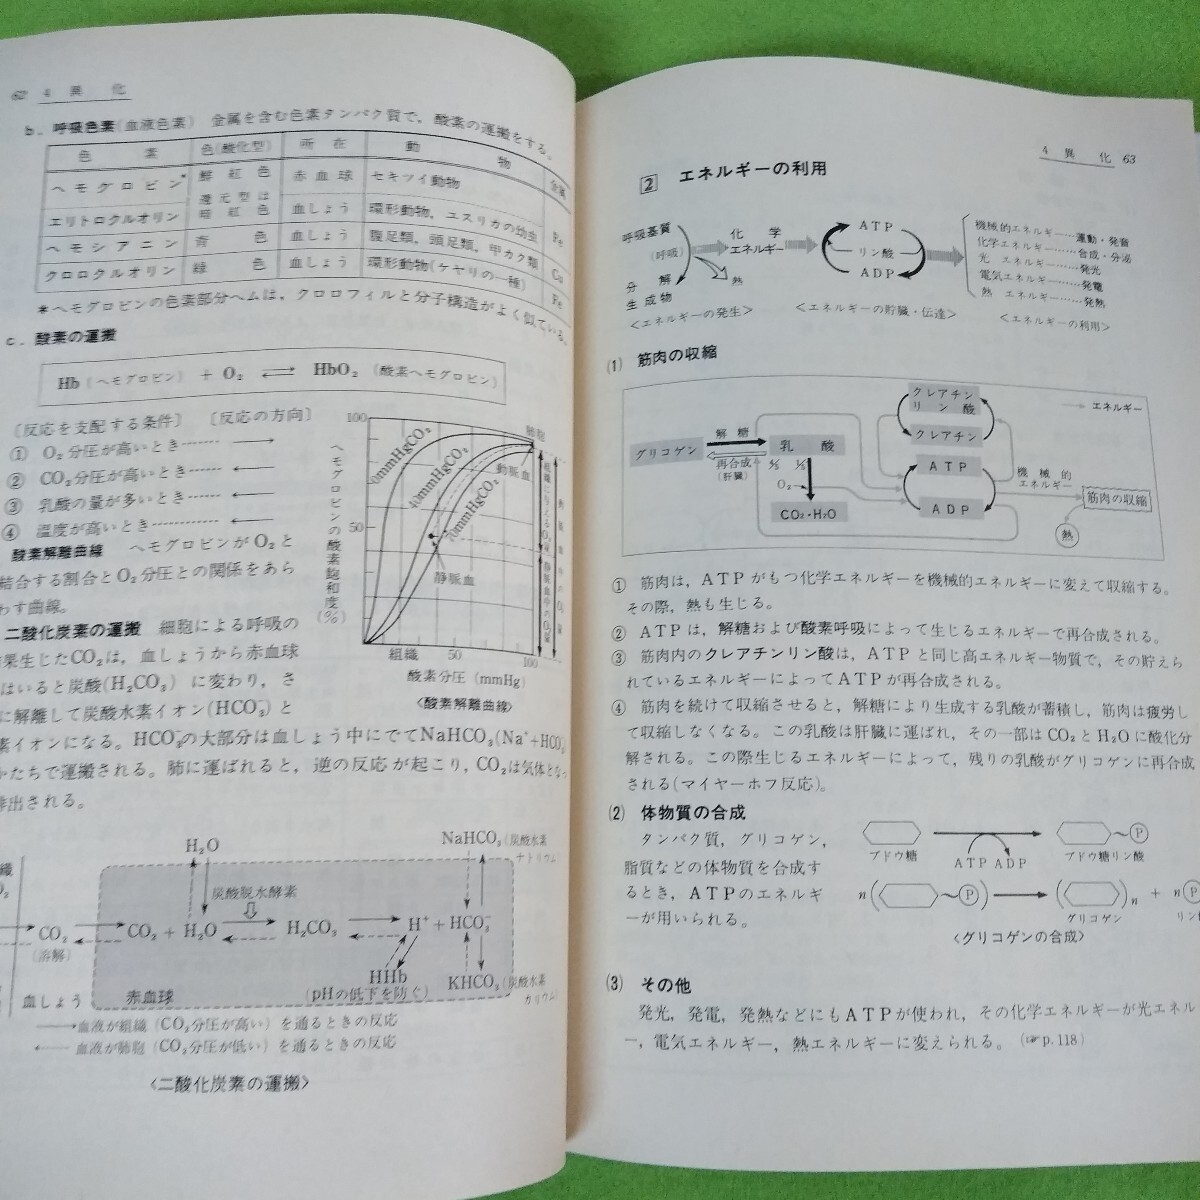 62 4 異 化
b. 呼吸色素(血液色素) 金属を含む色素タンパク質で，酸素の運搬をする。
色 素 色(酸化型) 所 在 動 物 金属
ヘモグロビン* 鮮紅色 赤血球 セキツイ動物
還元型は
エリトロクルオリン 暗紅色 血しょう 環形動物，ユスリカの幼虫 Fe
ヘモシアニン 青 色 血しょう 腹足類，頭足類，甲カク類 Cu
クロロクルオリン 緑 色 血しょう 環形動物(ケヤリの一種) Fe
*ヘモグロビンの色素部分ヘムは，クロロフィルと分子構造がよく似ている。
c. 酸素の運搬
Hb (ヘモグロビン) + O₂ ⇄ HbO₂ (酸素ヘモグロビン)
〔反応を支配する条件〕 〔反応の方向〕
① O₂分圧が高いとき…… →
② CO₂分圧が高いとき…… ←
③ 乳酸の量が多いとき…… ←
④ 温度が高いとき………… ←
酸素解離曲線 ヘモグロビンがO₂と
結合する割合とO₂分圧との関係をあら
わす曲線。
ヘモグロビンの酸素飽和度(%)
100
50
0mmHgCO₂
40mmHgCO₂
70mmHgCO₂
肺胞
動脈血
静脈血
組織に与えるO₂量
静脈血中のO₂量
動脈血中のO₂量
組織 50 100
酸素分圧 (mmHg)
〈酸素解離曲線〉
二酸化炭素の運搬 細胞による呼吸の
結果生じたCO₂は，血しょうから赤血球
はいると炭酸(H₂CO₃) に変わり，さ
に解離して炭酸水素イオン(HCO₃⁻) と
素イオンになる。HCO₃⁻の大部分は血しょう中にでてNaHCO₃(Na⁺+HCO₃⁻
かたちで運搬される。肺に運ばれると，逆の反応が起こり，CO₂は気体となっ
排出される。
H₂O
炭酸脱水酵素
NaHCO₃ (炭酸水素ナトリウム)
CO₂ (溶解) CO₂ + H₂O H₂CO₃ H⁺ + HCO₃⁻
HHb (pHの低下を防ぐ)
KHCO₃ (炭酸水素カリウム)
血しょう 赤血球
→血液が組織 (CO₂分圧が高い) を通るときの反応
←血液が肺胞 (CO₂分圧が低い) を通るときの反応
〈二酸化炭素の運搬〉
4 異 化 63
2 エネルギーの利用
呼吸基質
(呼吸)
分 解
生成物
化 学
エネルギー
熱
ATP
リン酸
ADP
機械的エネルギー……運動・発音
化学エネルギー……合成・分泌
光 エネルギー……発光
電気エネルギー……発電
熱 エネルギー……発熱
<エネルギーの発生> <エネルギーの貯蔵・伝達> <エネルギーの利用>
(1) 筋肉の収縮
クレアチンリン酸
→エネルギー
クレアチン
グリコゲン
解 糖
再合成
(肝臓)
乳 酸
O₂
CO₂・H₂O
ATP
ADP
機械的エネルギー
筋肉の収縮
熱
① 筋肉は，ATPがもつ化学エネルギーを機械的エネルギーに変えて収縮する。
その際，熱も生じる。
② ATPは，解糖および酸素呼吸によって生じるエネルギーで再合成される。
③ 筋肉内のクレアチンリン酸は，ATPと同じ高エネルギー物質で，その貯えら
れているエネルギーによってATPが再合成される。
④ 筋肉を続けて収縮させると，解糖により生成する乳酸が蓄積し，筋肉は疲労し
て収縮しなくなる。この乳酸は肝臓に運ばれ，その一部はCO₂とH₂Oに酸化分
解される。この際生じるエネルギーによって，残りの乳酸がグリコゲンに再合成
される(マイヤーホフ反応)。
(2) 体物質の合成
タンパク質，グリコゲン，
脂質などの体物質を合成す
るとき，ATPのエネルギ
ーが用いられる。
ブドウ糖 ATP ADP ブドウ糖リン酸 P
n( ~P) → ( )n + n P
グリコゲン リン
<グリコゲンの合成>
(3) その他
発光，発電，発熱などにもATPが使われ，その化学エネルギーが光エネル
ー，電気エネルギー，熱エネルギーに変えられる。(☞p.118)